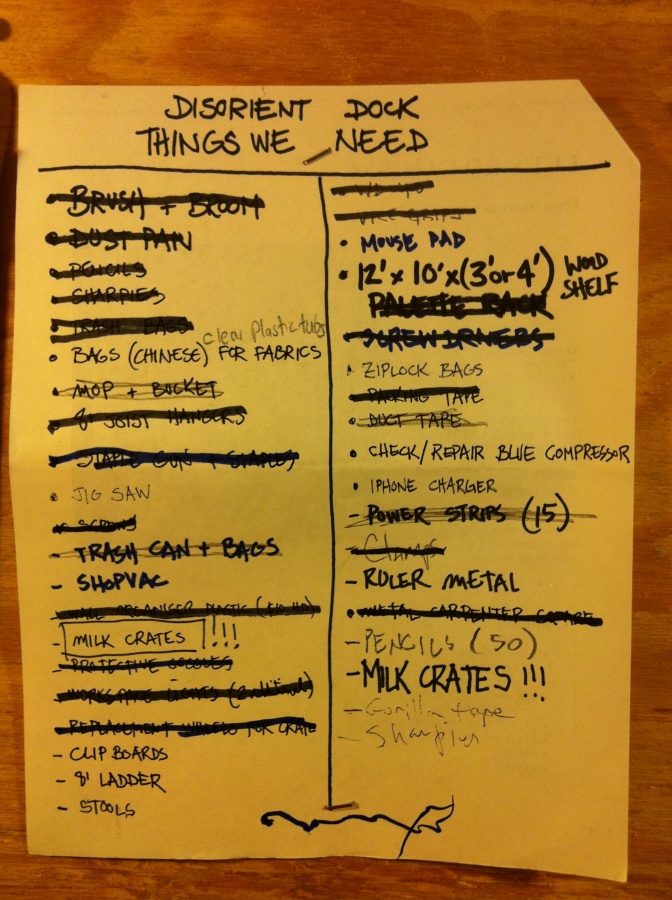 DISORIENT DOCK
THINGS WE NEED
BRUSH + BROOM
DUST PAN
PENCILS
SHARPIES
TRASH BAGS
clear plastic tubs
BAGS (CHINESE) FOR FABRICS
MOP + BUCKET
8' JOIST HANGERS
STAPLE GUN + STAPLES
JIG SAW
SCREWS
TRASH CAN + BAGS
SHOPVAC
WALL ORGANISER PLASTIC
MILK CRATES !!!
PROTECTIVE GOGGLES
WORKSPACE LIGHTS
REPLACEMENT WHEELS FOR CRATE
CLIP BOARDS
8' LADDER
STOOLS
WD 40
VICE GRIPS
MOUSE PAD
12' x 10' x (3' or 4') WOOD SHELF
PALETTE RACK
SCREWDRIVERS
ZIPLOCK BAGS
PACKING TAPE
DUCT TAPE
CHECK/REPAIR BLUE COMPRESSOR
IPHONE CHARGER
POWER STRIPS (15)
Clamps
RULER METAL
METAL CARPENTER SQUARE
PENCILS (50)
MILK CRATES !!!
Gorilla tape
Sharpies